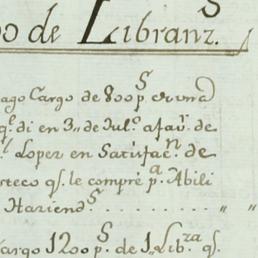 do de Libranz.s
ago Cargo de 800 p.s en una
q.e di en 3,, de Jul.o a fav.r de
Lopez en Satisfac.n de
rteco q.e le compré p.a Abili
Hariend.s . . . . . . . . . . " "
Cargo 1200 p.s de 1,, Lib.za q.e